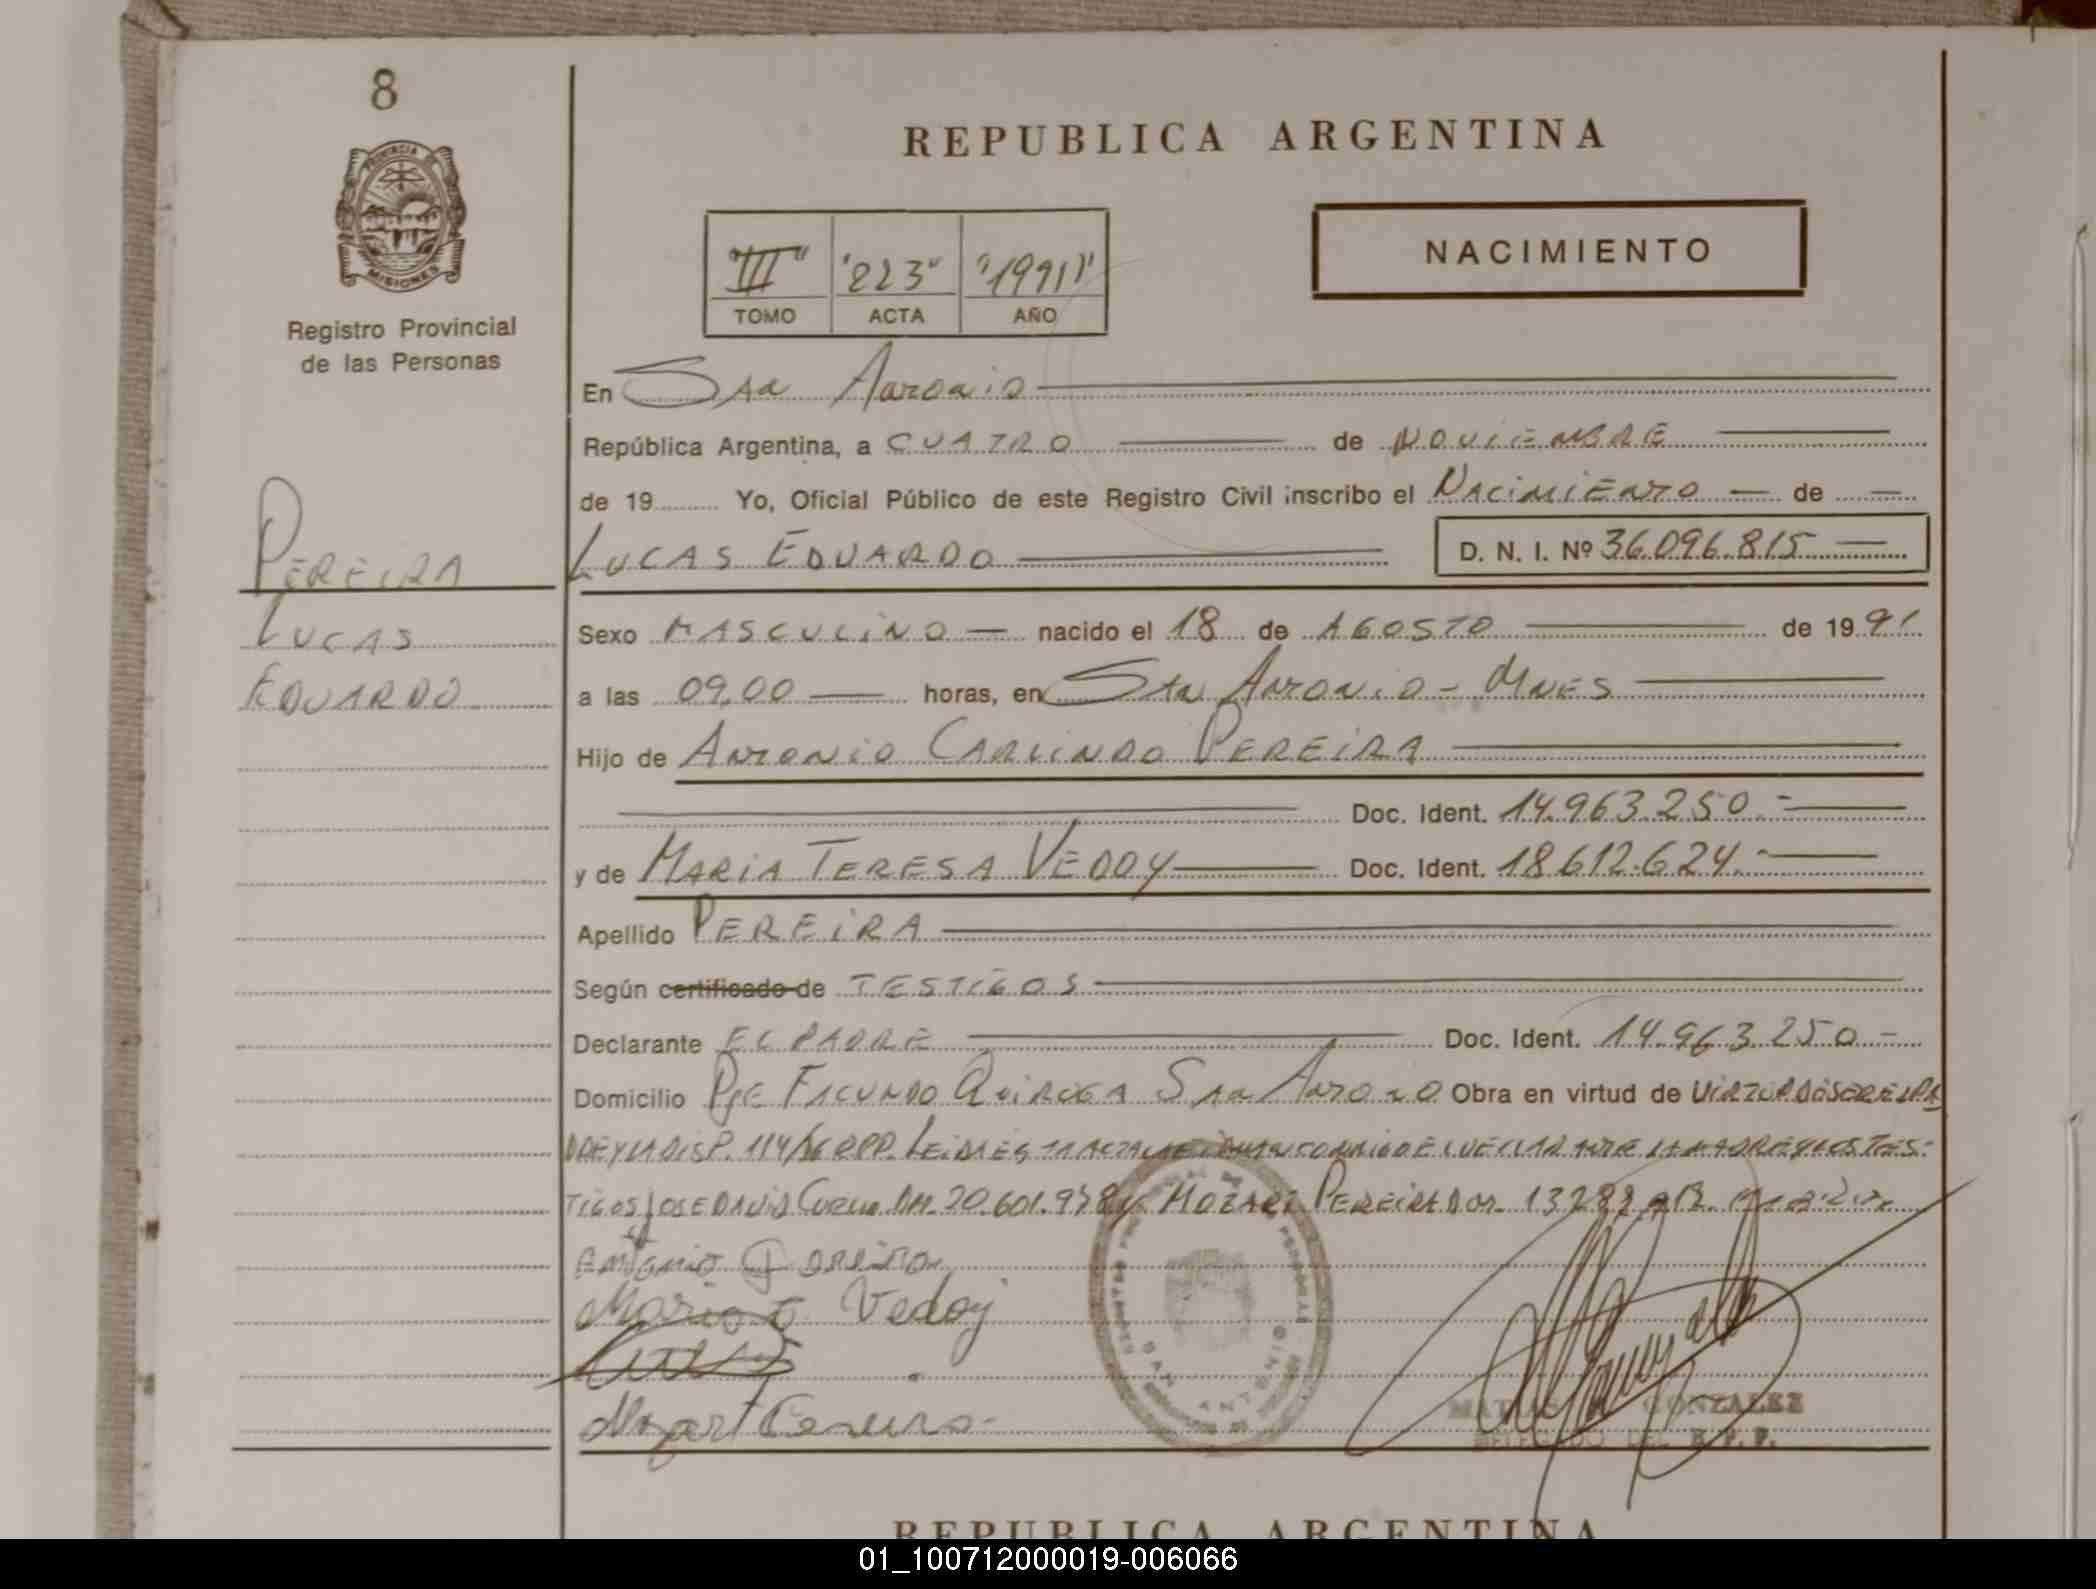 8
REPUBLICA ARGENTINA
PROVINCIA DE
MISIONES
Registro Provincial
de las Personas
NACIMIENTO
"III" "223" "1991"
TOMO ACTA AÑO
En San Antonio
República Argentina, a CUATRO de NOVIEMBRE
de 19 Yo, Oficial Público de este Registro Civil inscribo el NACIMIENTO de
LUCAS EDUARDO D. N. I. Nº 36.096.815
PEREIRA
LUCAS
EDUARDO
Sexo MASCULINO nacido el 18 de AGOSTO de 1991
a las 09,00 horas, en SAN ANTONIO - MNES
Hijo de ANTONIO CARLINDO PEREIRA
Doc. Ident. 14.963.250.-
y de MARIA TERESA VEDOY Doc. Ident. 18.612.624.-
Apellido PEREIRA
Según certificado de TESTIGOS
Declarante EL PADRE Doc. Ident. 14.963.250-
Domicilio PJE FACUNDO QUIROGA SAN ANTONIO Obra en virtud de
DISP. 114/ RPP. LEIDA ESTA ACTA LA MADRE Y LOS TES-
TIGOS JOSE DAVID 20.601.958 y MOZART PEREIRA
Antonio Pereira
Maria T. Vedoy
Mozart Pereira
SAN ANTONIO
MATIAS GONZALEZ
DELEGADO DEL R. P. P.
REPUBLICA ARGENTINA
01_100712000019-006066